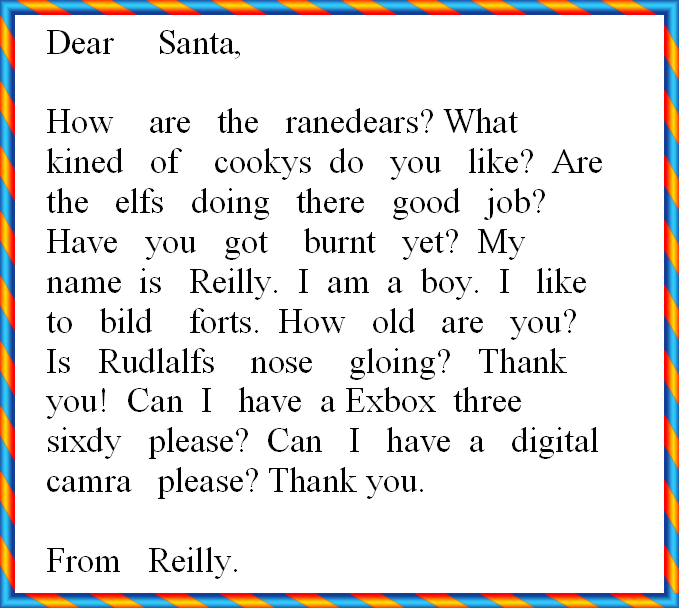 Dear Santa,
How are the ranedears? What
kined of cookys do you like? Are
the elfs doing there good job?
Have you got burnt yet? My
name is Reilly. I am a boy. I like
to bild forts. How old are you?
Is Rudlalfs nose gloing? Thank
you! Can I have a Exbox three
sixdy please? Can I have a digital
camra please? Thank you.
From Reilly.